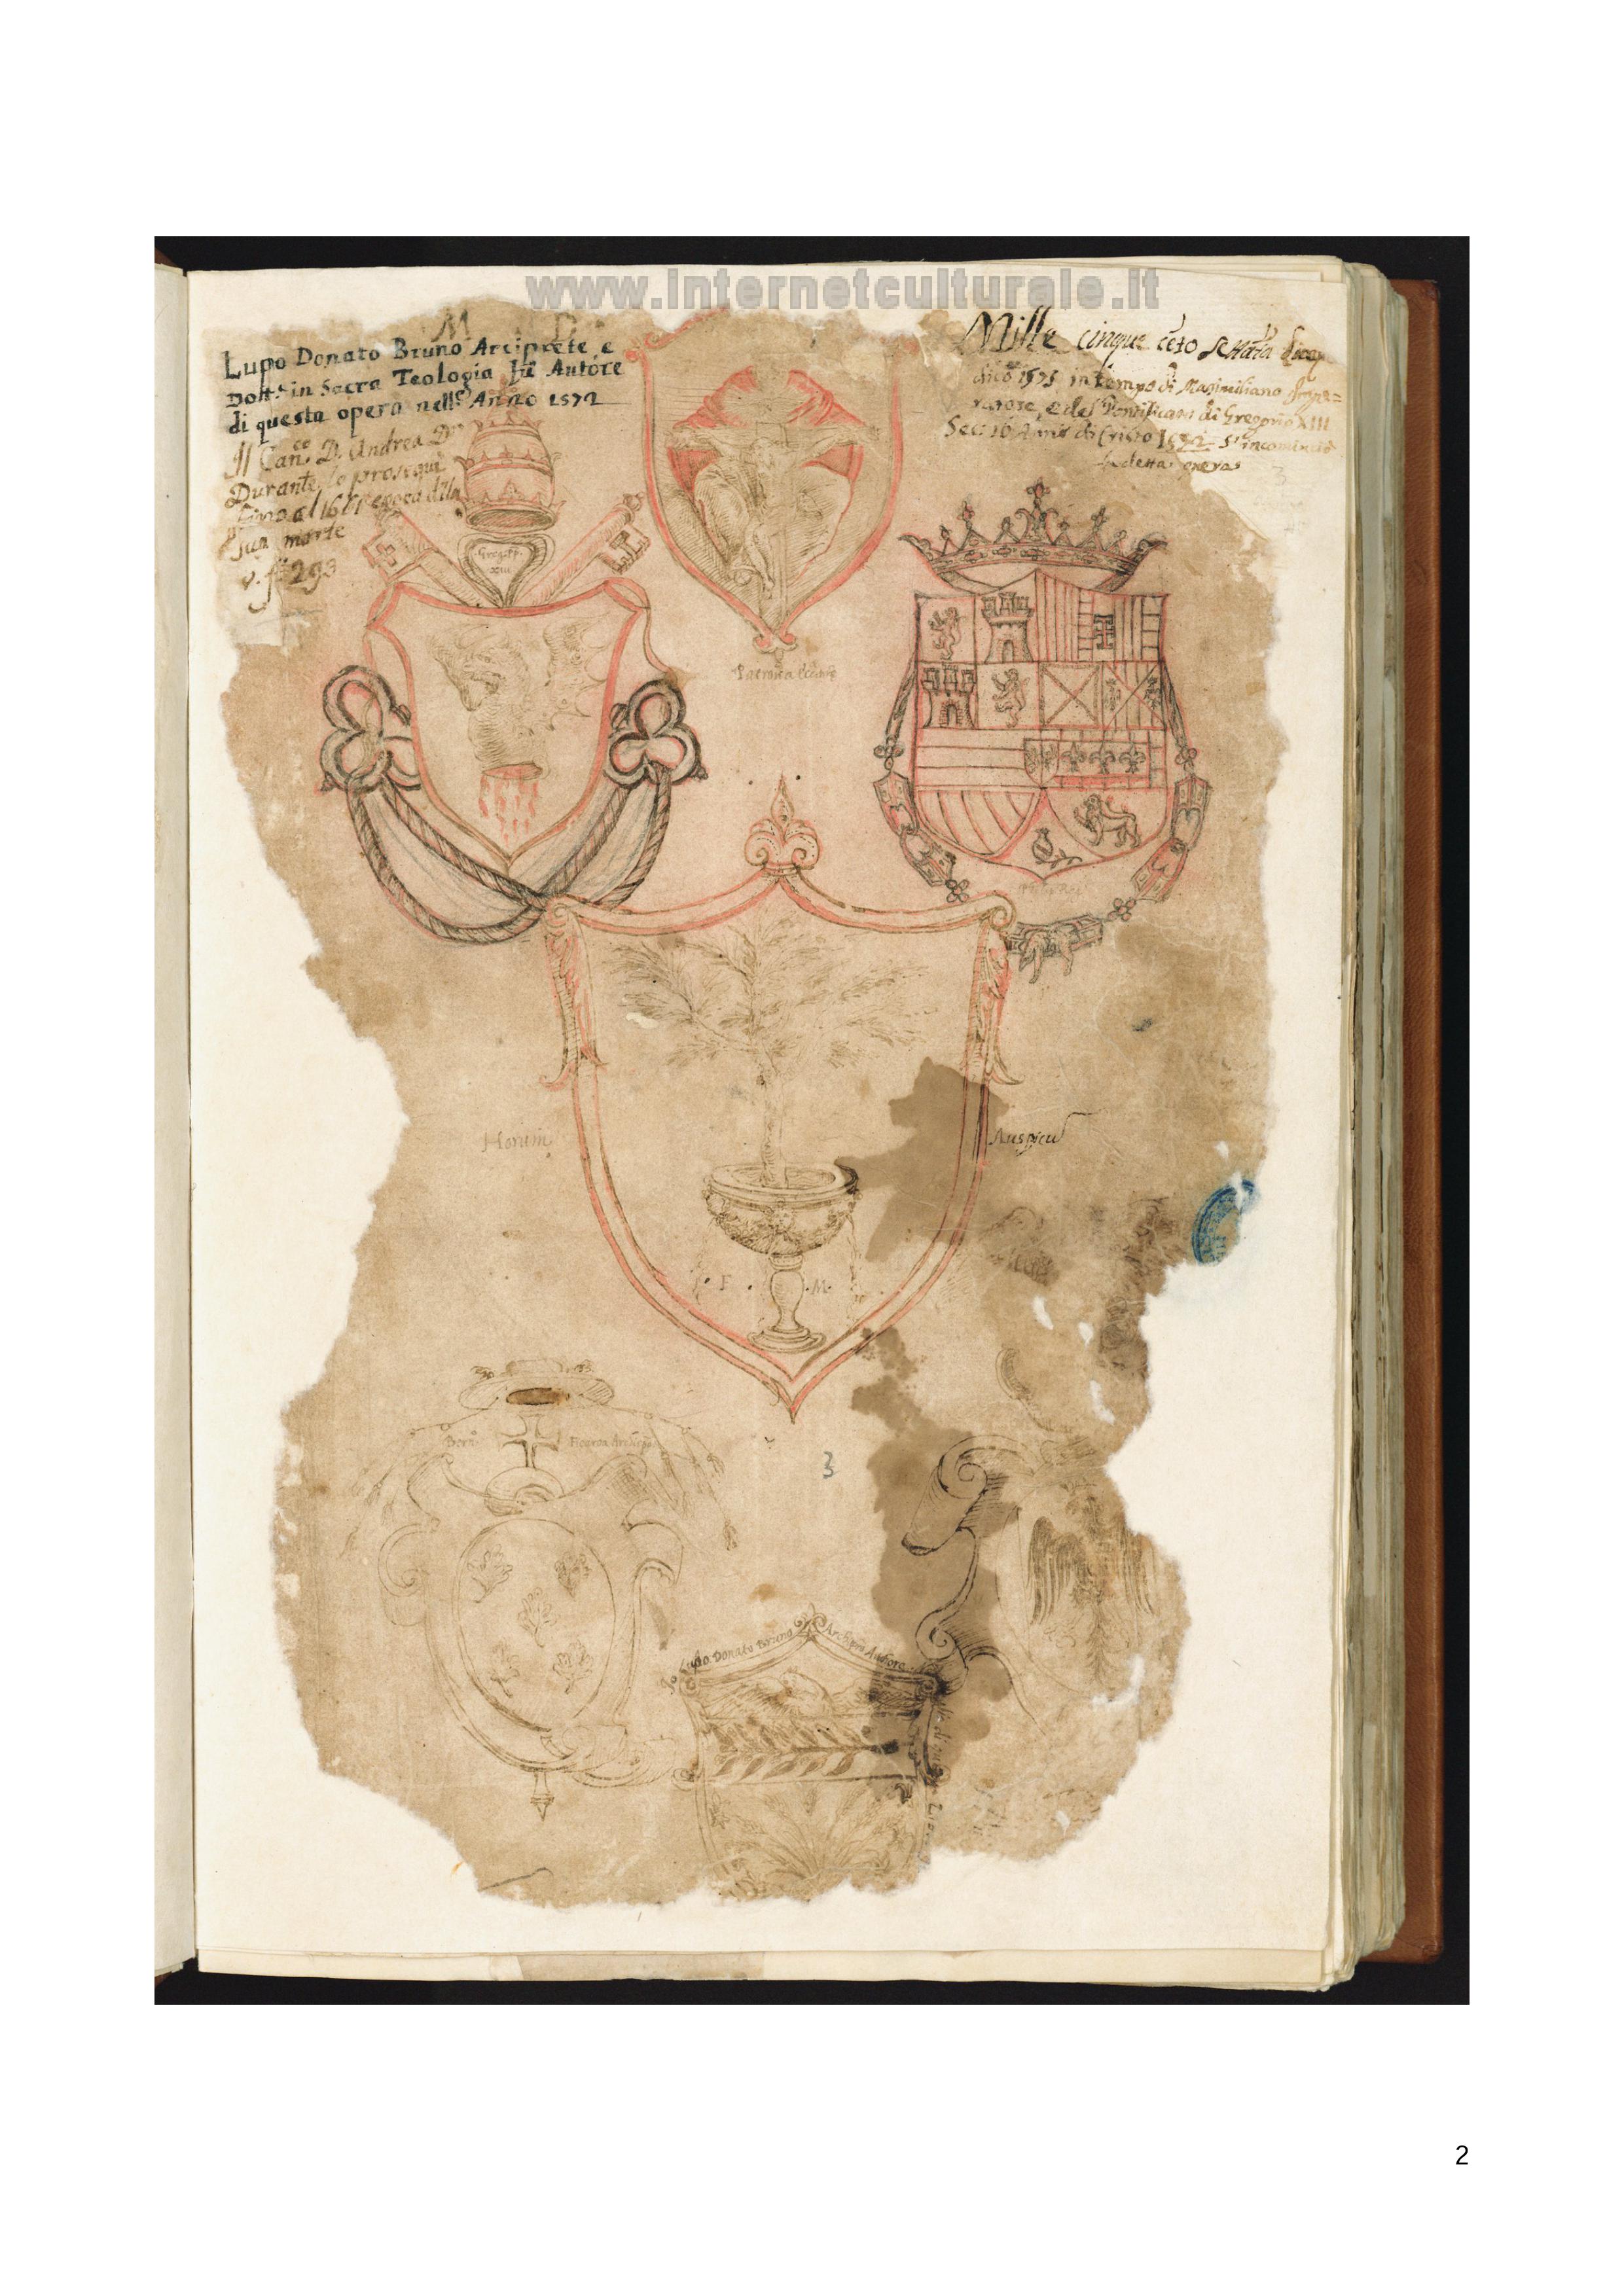 www.internetculturale.it
M D
Lupo Donato Bruno Arciprete, e
Dott.r in Sacra Teologia Fu Autore
di questa opera nell'Anno 1572
Il Can.co D. Andrea D.
Durante, lo proseguì
sino al epoca della
sua morte
v. f. 293
Mille cinque cẽto settãta
1575 in tempo di Masimiliano Impe=
ratore, e del Pontificato di Gregorio XIII
Sec: 16 Anno di Cristo 1572 S'incominciò
la detta opera
3
Greg. pp.
XIII
Patrona
Horum
Auspicu
F . M.
3
Lupo Donato Bruno Archipr Authore
2